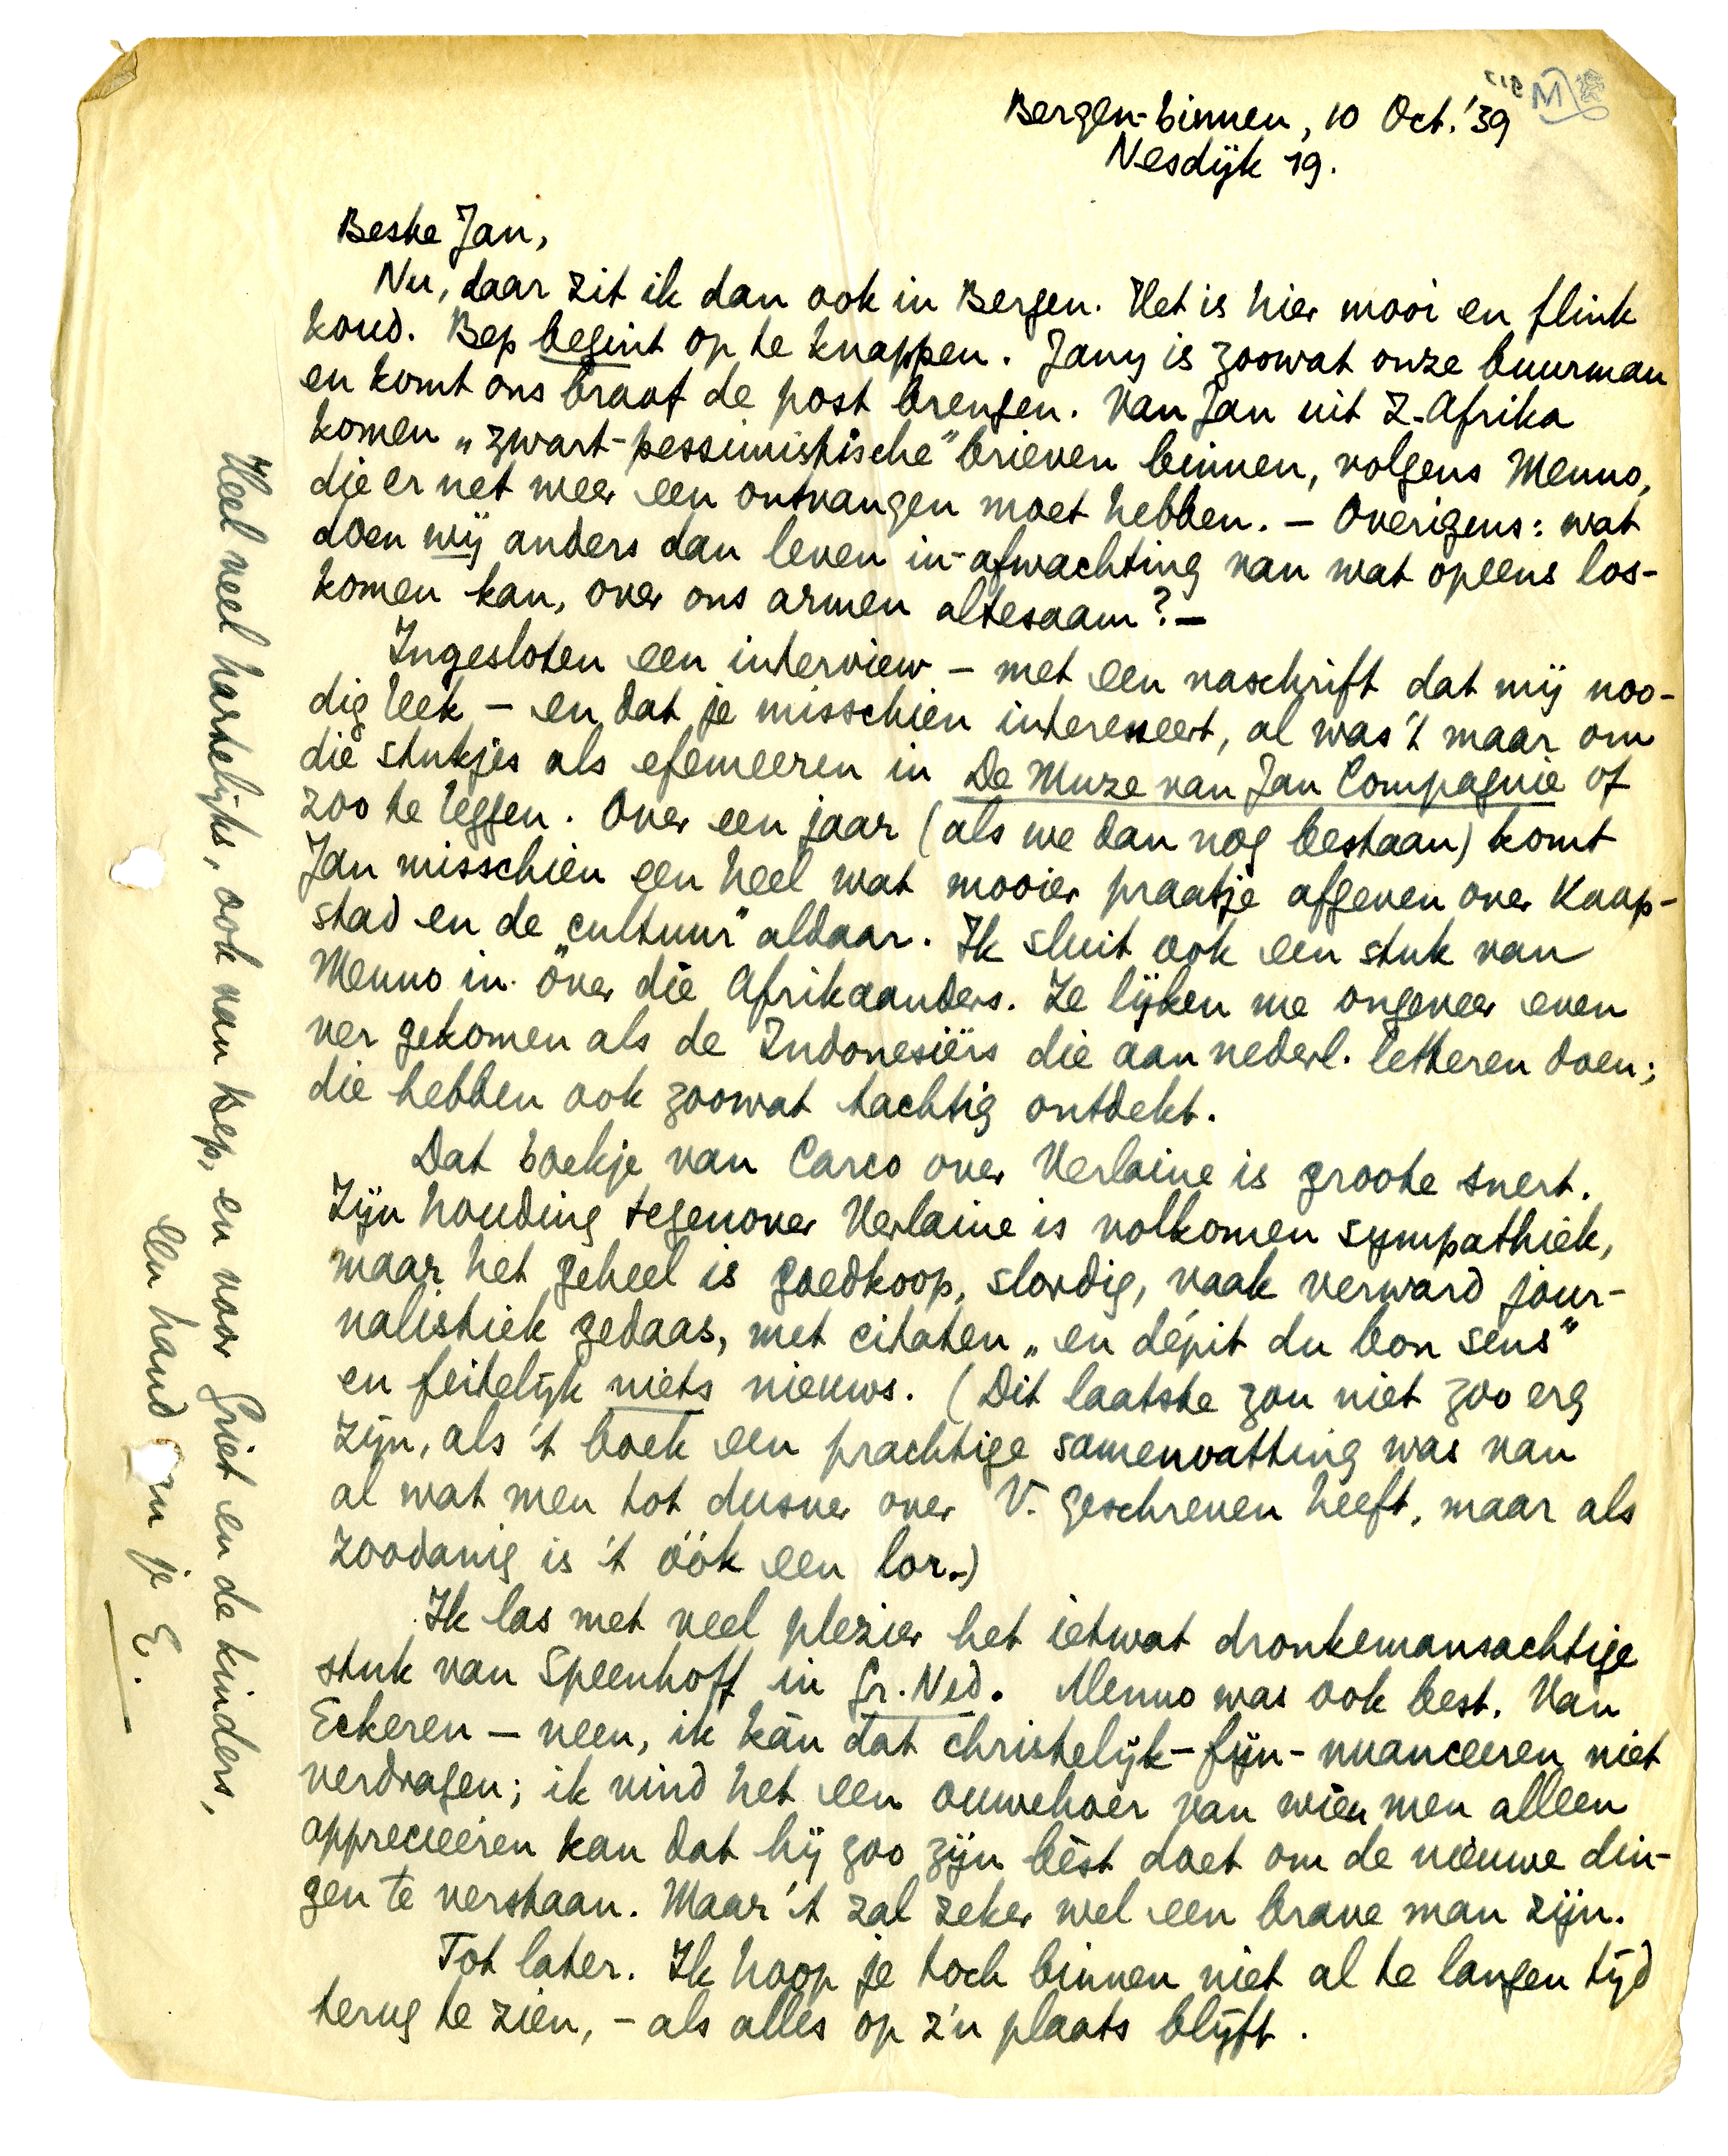 Bergen-binnen, 10 Oct. '39
Nesdijk 19.
Beste Jan,
Nu, daar zit ik dan ook in Bergen. Het is hier mooi en flink
koud. Bep begint op te knappen. Jany is zoowat onze buurman
en komt ons braaf de post brengen. Van Jan uit Z.-Afrika
komen „zwart-pessimistische" brieven binnen, volgens Menno,
die er net weer een ontvangen moet hebben. – Overigens: wat
doen wij anders dan leven in-afwachting van wat opeens los-
komen kan, over ons armen altesaam? –
Ingesloten een interview – met een naschrift dat mij noo-
dig leek – en dat je misschien interesseert, al was 't maar om
die stukjes als efemeeren in De Muze van Jan Compagnie of
zoo te leggen. Over een jaar (als we dan nog bestaan) komt
Jan misschien een heel wat mooier praatje afgeven over Kaap-
stad en de „cultuur" aldaar. Ik sluit ook een stuk van
Menno in over die Afrikaanders. Ze lijken me ongeveer even
ver gekomen als de Indonesiërs die aan nederl. letteren doen;
die hebben ook zoowat tachtig ontdekt.
Dat boekje van Carco over Verlaine is groote snert.
Zijn houding tegenover Verlaine is volkomen sympathiek,
maar het geheel is goedkoop, slordig, vaak verward jour-
nalistiek gedaas, met citaten „en dépit du bon sens"
en feitelijk niets nieuws. (Dit laatste zou niet zoo erg
zijn, als 't boek een prachtige samenvatting was van
al wat men tot dusver over V. geschreven heeft, maar als
zoodanig is 't óók een lor.)
Ik las met veel plezier het ietwat dronkemansachtige
stuk van Speenhoff in Gr. Ned. Menno was ook best. Van
Eckeren – neen, ik kàn dat christelijk-fijn-nuanceeren niet
verdragen; ik vind het een ouwehoer van wien men alleen
apprecieeren kan dat hij zoo zijn bèst doet om de nieuwe din-
gen te verstaan. Maar 't zal zeker wel een brave man zijn.
Tot later. Ik hoop je toch binnen niet al te langen tijd
terug te zien, – als alles op z'n plaats blijft.
Heel veel hartelijks, ook van Bep, en voor Griet en de kinders,
een hand van je E.